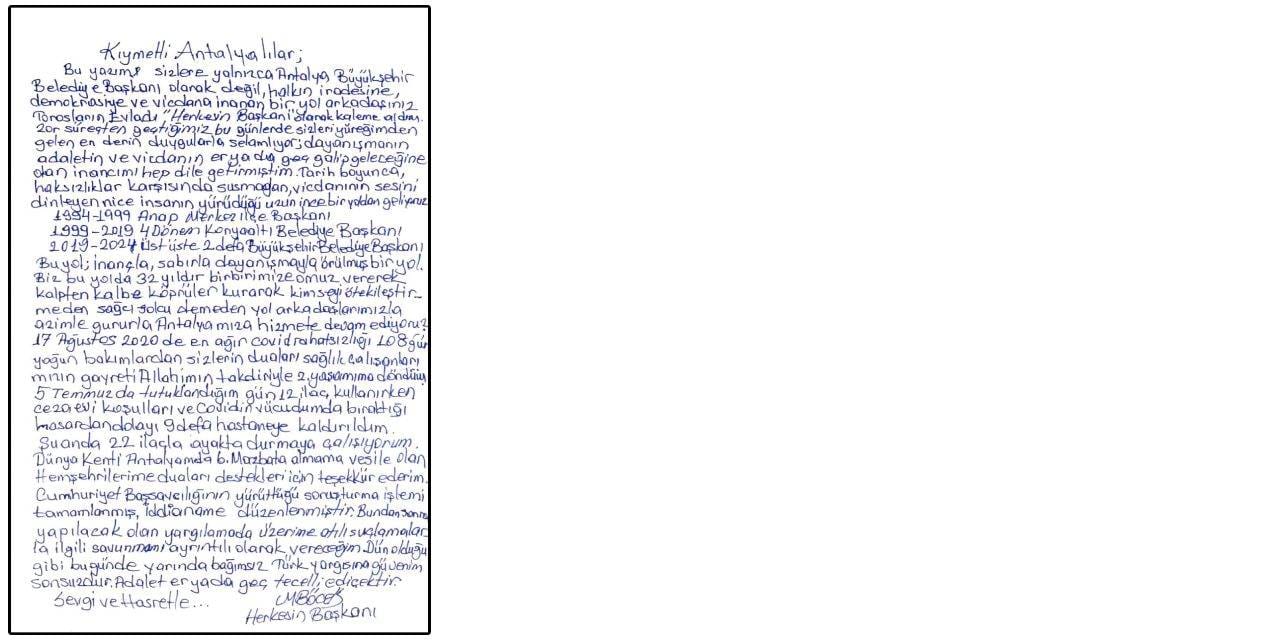 Kıymetli Antalyalılar;
Bu yazımı sizlere yalnızca Antalya Büyükşehir
Belediye Başkanı olarak değil, halkın iradesine,
demokrasiye ve vicdana inanan bir yol arkadaşınız
Torosların Evladı "Herkesin Başkanı" olarak kaleme aldım.
Zor süreçten geçtiğimiz bu günlerde sizleri yüreğimden
gelen en derin duygularla selamlıyor; dayanışmanın
adaletin ve vicdanın er ya da geç galip geleceğine
olan inancımı hep dile getirmiştim. Tarih boyunca,
haksızlıklar karşısında susmadan, vicdanının sesini
dinleyen nice insanın yürüdüğü uzun ince bir yoldan geliyoruz
1994-1999 Anap Merkez ilçe Başkanı
1999-2019 4 Dönem Konyaaltı Belediye Başkanı
2019-2024 üst üste 2 defa Büyükşehir Belediye Başkanı
Bu yol; inançla, sabırla dayanışmayla örülmüş bir yol.
Biz bu yolda 32 yıldır birbirimize omuz vererek
kalpten kalbe köprüler kurarak kimseyi ötekileştir-
meden sağcı solcu demeden yol arkadaşlarımızla
azimle gururla Antalyamıza hizmete devam ediyoruz
17 Ağustos 2020 de en ağır covid rahatsızlığı 108 gün
yoğun bakımlardan sizlerin duaları sağlık çalışanları
mızın gayreti Allahımın takdiriyle 2. yaşamıma döndüm
5 Temmuz da tutuklandığım gün 12 ilaç kullanırken
cezaevi koşulları ve Covidin vücudumda bıraktığı
hasardan dolayı 9 defa hastaneye kaldırıldım.
Şuanda 22 ilaçla ayakta durmaya çalışıyorum.
Dünya Kenti Antalyamda 6. Mazbata almama vesile olan
Hemşehrilerime duaları destekleri için teşekkür ederim.
Cumhuriyet Başsavcılığının yürüttüğü soruşturma işlemi
tamamlanmış, İddianame düzenlenmiştir. Bundan sonra
yapılacak olan yargılamada üzerime atılı suçlamalar
la ilgili savunmamı ayrıntılı olarak vereceğim. Dün olduğu
gibi bugünde yarında bağımsız Türk yargısına güvenim
sonsuzdur. Adalet er yada geç tecelli edicektir.
Sevgi ve Hasretle... MBÖCEK
Herkesin Başkanı